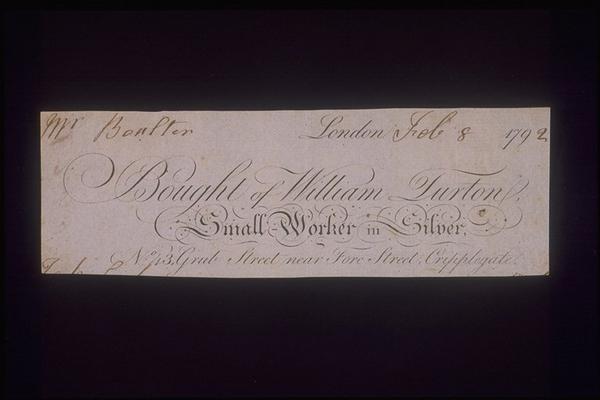 Mr Boulter London Feb 8 1792
Bought of William Turton,
Small-Worker in Silver,
No. 43, Grub Street near Fore Street, Cripplegate.